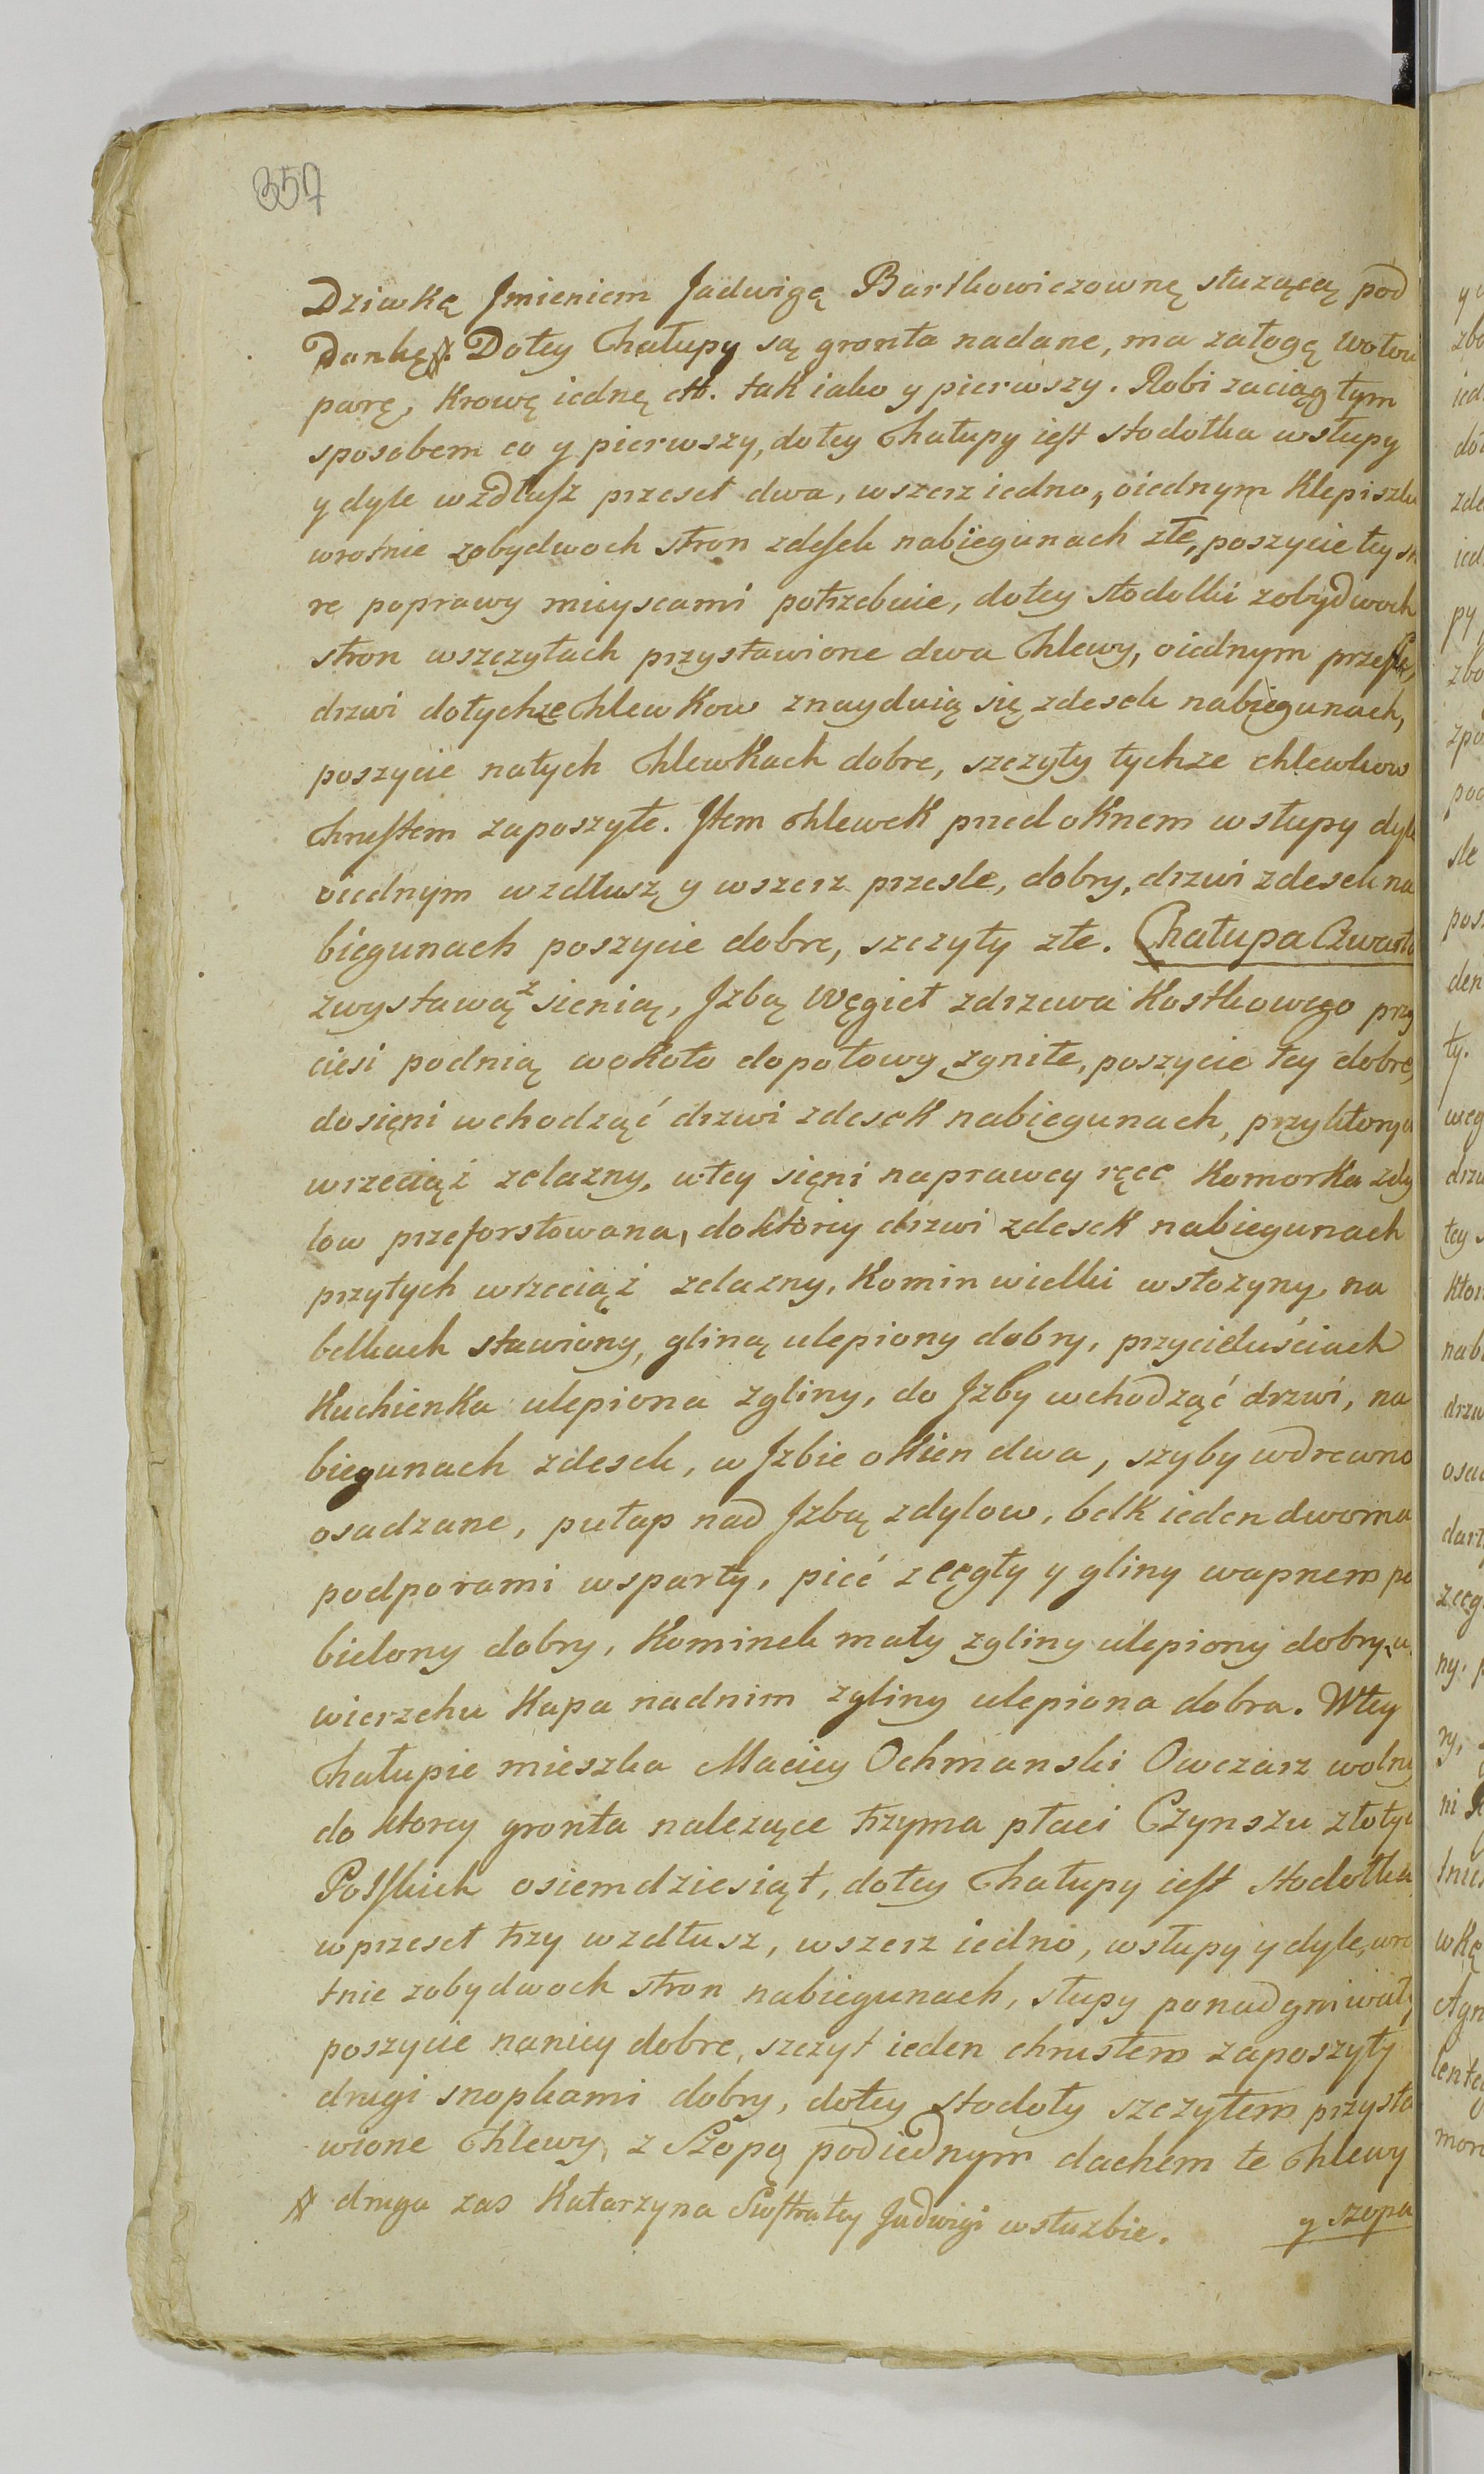 357
Dziwkę Jmieniem Jadwigę Bartkowiczownę słuzącą pod
Dankę☆. Dotey Chałupy są gronta nadane, ma załogę wołow
parę, Krowę iednę ett. tak iako y pierwszy. Robi zaciąg tym
sposobem co y pierwszy, dotey Chałupy iest stodołka wsłupy
y dyle wzdłusz przeseł dwa, wszerz iedno, oiednym Klepiszku
wrotnie zobydwoch stron zdesek nabiegunach złe, poszycie tey sta
re poprawy mieyscami potrzebuie, dotey stodołki zobydwoch
stron wszczytach przystawione dwa Chlewy, oiednym przęśle,
drzwi dotychże Chlewkow znayduią się zdesek nabiegunach,
poszycie natych Chlewkach dobre, szczyty tychze chlewkow
Chrustem zaposzyte. Item Chlewek przed oknem wsłupy dyle
oiednym wzdłusz y wszerz przesle, dobry, drzwi zdesek na
biegunach poszycie dobre, szczyty złe. Chałupa Czwarta
zwystawą z sienią, Jzbą Węgieł zdrzewa Kostkowego przy
ciesi podnią wokoło dopołowy zgniłe, poszycie tey dobre,
dosięni wchodząć drzwi zdesek nabiegunach, przyktorych
wrzeciąż zelazny, wtey sięni naprawey ręce Komorka zdy
low przeforstowana, doktorey drzwi zdesek nabiegunach
przytych wrzeciąż zelazny, Komin wielki wstozyny, na
belkach stawiony, gliną ulepiony dobry, przycieluściach
Kuchienka ulepiona zgliny, do Jzby wchodząć drzwi, na
biegunach zdesek, w Jzbie okien dwa, szyby wdrewno
osadzane, pułap nad Jzbą zdylow, belk ieden dwoma
podporami wsparty, pieć z cęgły y gliny wapnem po
bielony dobry, Kominek mały zgliny ulepiony dobry, u
wierzchu Kapa nadnim zgliny ulepiona dobra. Wtey
Chałupie mieszka Maciey Ochmanski Owczarz wolny
do ktorey gronta nalezące trzyma płaci Czynszu złotych
Polskich osiemdziesiąt, dotey Chałupy iest stodołka
wprzeseł trzy wzdłusz, wszerz iedno, wsłupy y dyle, wro
tnie zobydwoch stron nabiegunach, słupy ponadgniwały
poszycie naniey dobre, szczyt ieden chrustem zaposzyty
drugi snopkami dobry, dotey stodoły szczytem przysta
wione Chlewy, z Szopą podiednym dachem te Chlewy
☆ druga zas Katarzyna Siostra tey Jadwigi wsłuzbie.
y szopa